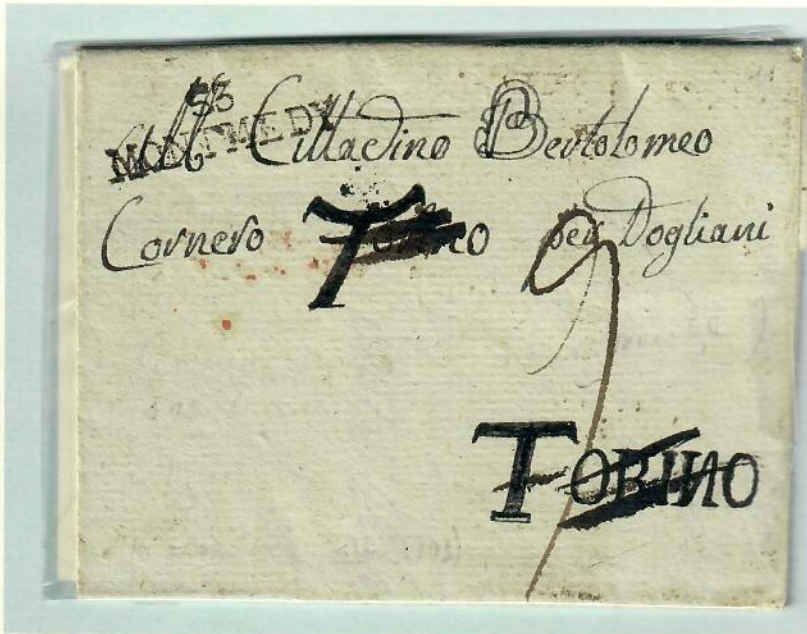 53
MONTMEDY
All Cittadino Bertolomeo
Cornero Torino per Dogliani
9
TORINO